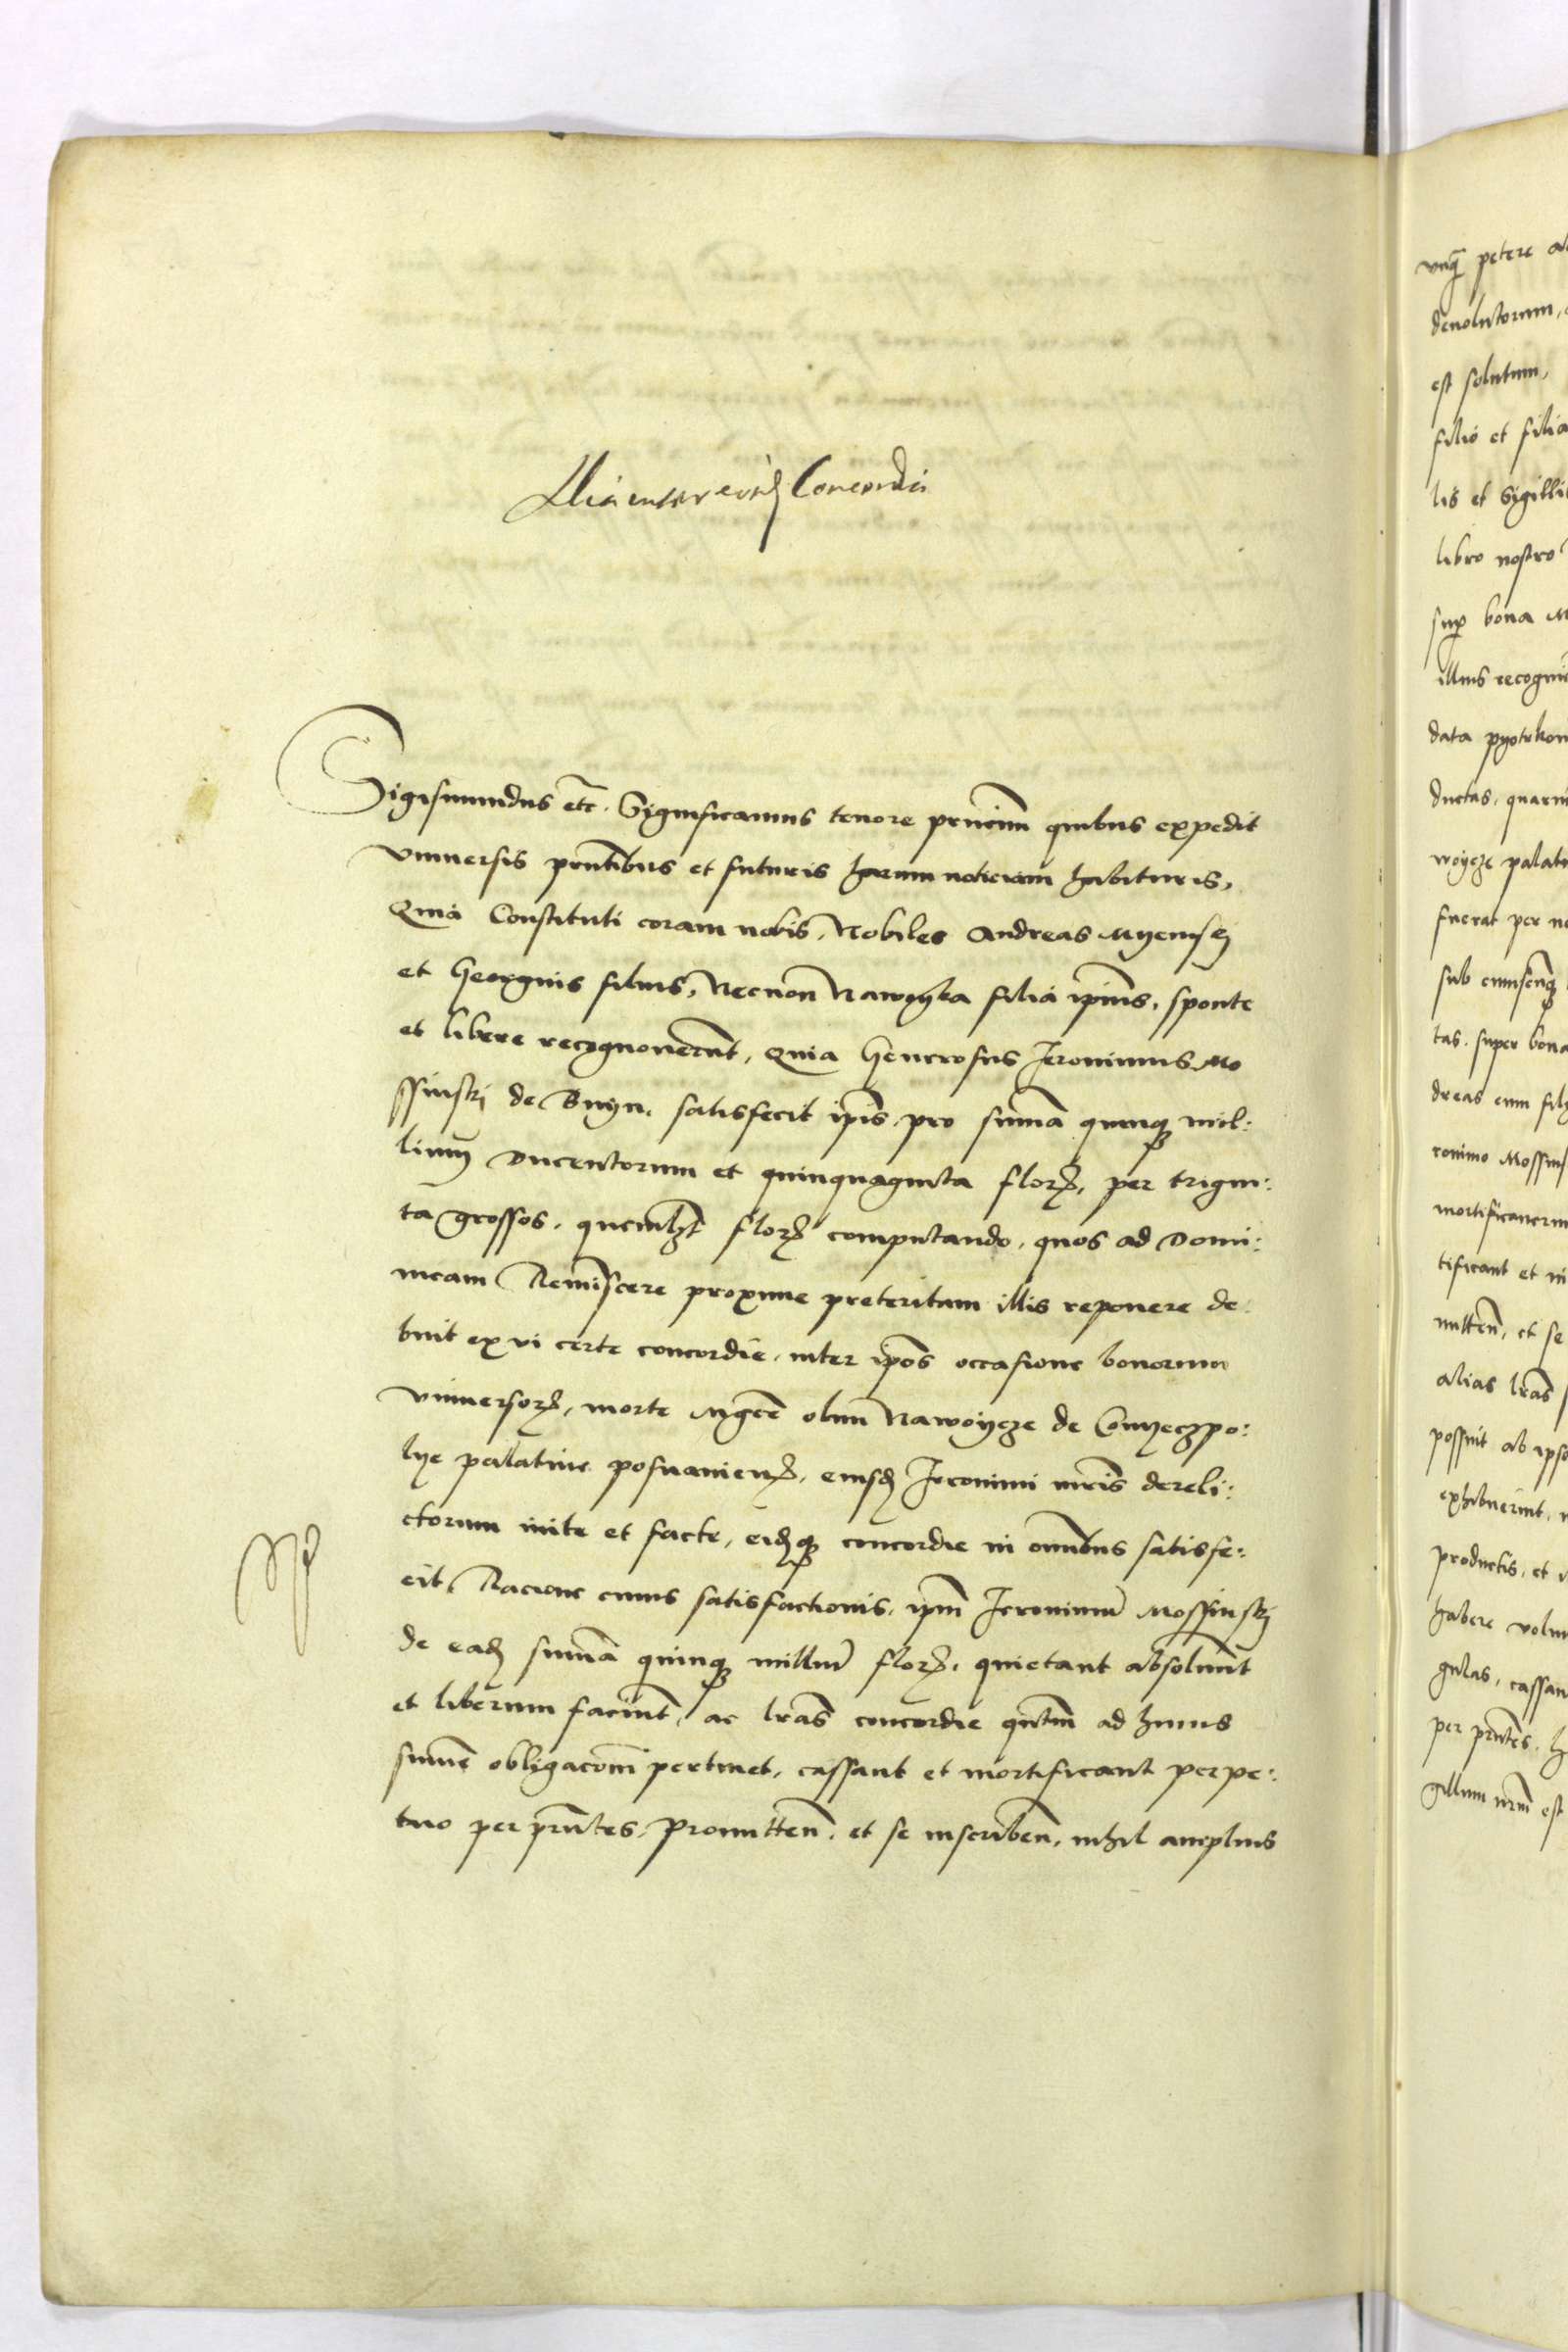 Alia inter eosd Concordia
Sigismundus etc. Significamus tenore pñcium quibus expedit
vniuersis pñtibus et futuris harum noticiam habituris,
Quia Constituti coram nobis, Nobiles Andreas Myemsky
et Georgius filius, Necnon Nawoyka filia ipius, sponte
et libere recognouerunt, Quia Generosus Jeronimus Mo
ssinski de Bnyn, satisfecit ipis, pro summa quinq mil:
lium Ducentorum et quinquaginta florz, per trigin:
ta grossos, quemlzt florz computando, quos ad Domi:
nicam Reminiscere proxime preteritam illis reponere de:
buit ex vi certe concordie, inter ipos occasione bonorum
vniuersorz, morte Mgce olim Nawoyeze de Conyeczpo:
lye palatine posnaniens, eiusd Jeronimi mris dereli:
ctorum inite et facte, eidq concordie in omibus satisfe:
cit, Racione cuius satisfactionis, ipm Jeronimu Mossinski
de ead summa quinq milliu florz, quietant absoluunt
et liberum faciunt, ac lras concordie qntm ad huius
summe obligacom pertinet, cassant et mortificant perpe:
tuo per pñtes, Promitteñ, et se inscribeñ, nihil amplius
vnq petere
deuolutorum,
est solutum,
filio et filia
lis et Sigilli
libro nostro
sup bona
illius recogni
data pyotrkou
ductas, quaru
woyeze palati
fuerat per
sub cuiuscunq
tas. super bona
dreas cum fily
ronimo Mossins
mortificauerun
tificant et
mitteñ, et se
alias lras
possint ab ipso
exhibuerint,
productis, et
habere volun
gulas, cassan
per pñtes.
gillum nrm est